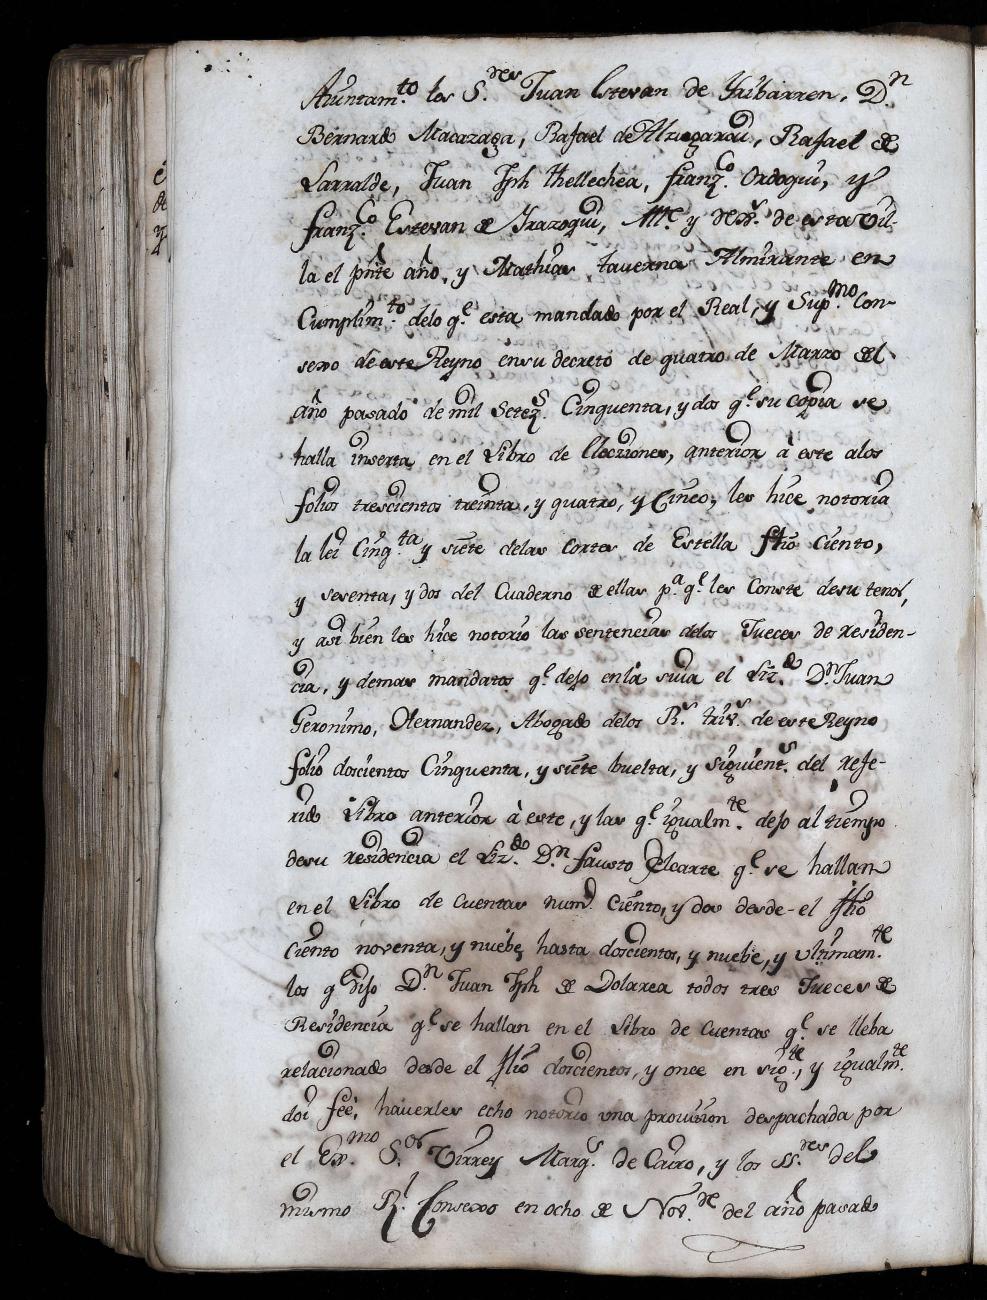 Aiuntam.to los S.res Juan Estevan de Yribarren, D.n
Bernardo Macazaga, Rafael de Alzugarai, Rafael de
Larralde, Juan Jph thellechea, franz.co Ordoqui, y
franz.co Estevan de Yrazoqui, Al.e y de esta vi-
lla el pñte año, y Mathias taverna Almirante en
Cumplim.to delo q.e esta mandado por el Real, y Sup.mo Con-
sexo de este Reyno ensu decreto de quatro de Marzo del
año pasado de mil Setez.s Cinquenta, y dos q.e su copia se
halla inserta en el Libro de Elecziones, anterior à este alos
folios trescientos treinta, y quatro, y Cinco, les hice notoria
la lei Cinq.ta y siete delas Cortes de Estella flio Ciento,
y sesenta, y dos del Cuaderno de ellas p.a q.e les Conste desu tenor,
y asi bien les hice notorio las sentencias delos Jueces de residen-
cia, y demas mandatos q.e dejo enla suia el Liz.do D.n Juan
Geronimo, Hernandez, Abogado delos R.s triv.s de este Reyno
folio doscientos Cinquenta, y siete buelta, y siguient.s del refe-
rido Libro anterior à este, y las q.e igualm.te dejo al tiempo
desu residencia el Liz.do D.n fausto Elcarte q.e se hallan
en el Libro de Cuentas num.o Ciento, y dos desde el flio
Ciento noventa, y nuebe, hasta doscientos, y nuebe, y ultimam.te
los q.e dijo D.n Juan Jph de Dolarea todos tres Jueces de
Residencia q.e se hallan en el Libro de Cuentas q.e se lleba
relacionado desde el flio doscientos, y once en sig.te, y igualm.te
doi feè, haverles echo notorio una provision despachada por
el Ex.mo S.or Virrey Marq.s de Cairo, y los SS.res del
mismo R.l Consexo en ocho de Nov.re del año pasado